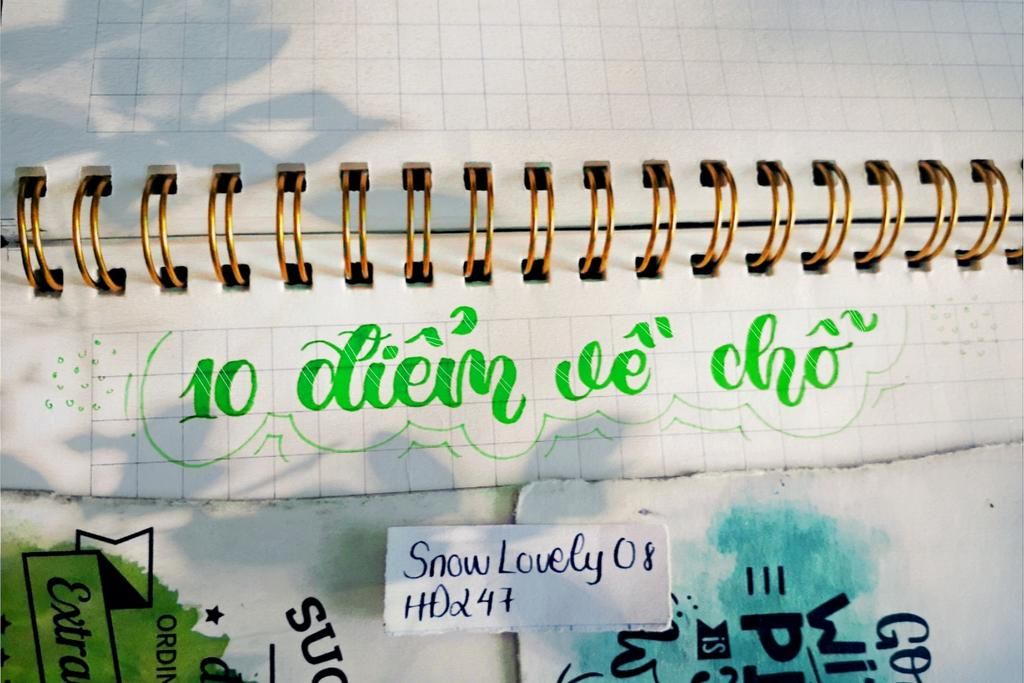 10 điểm về chỗ
Snow Lovely 08
HDα47
Extra
ORDIN
SUC
IS
Wi
Go